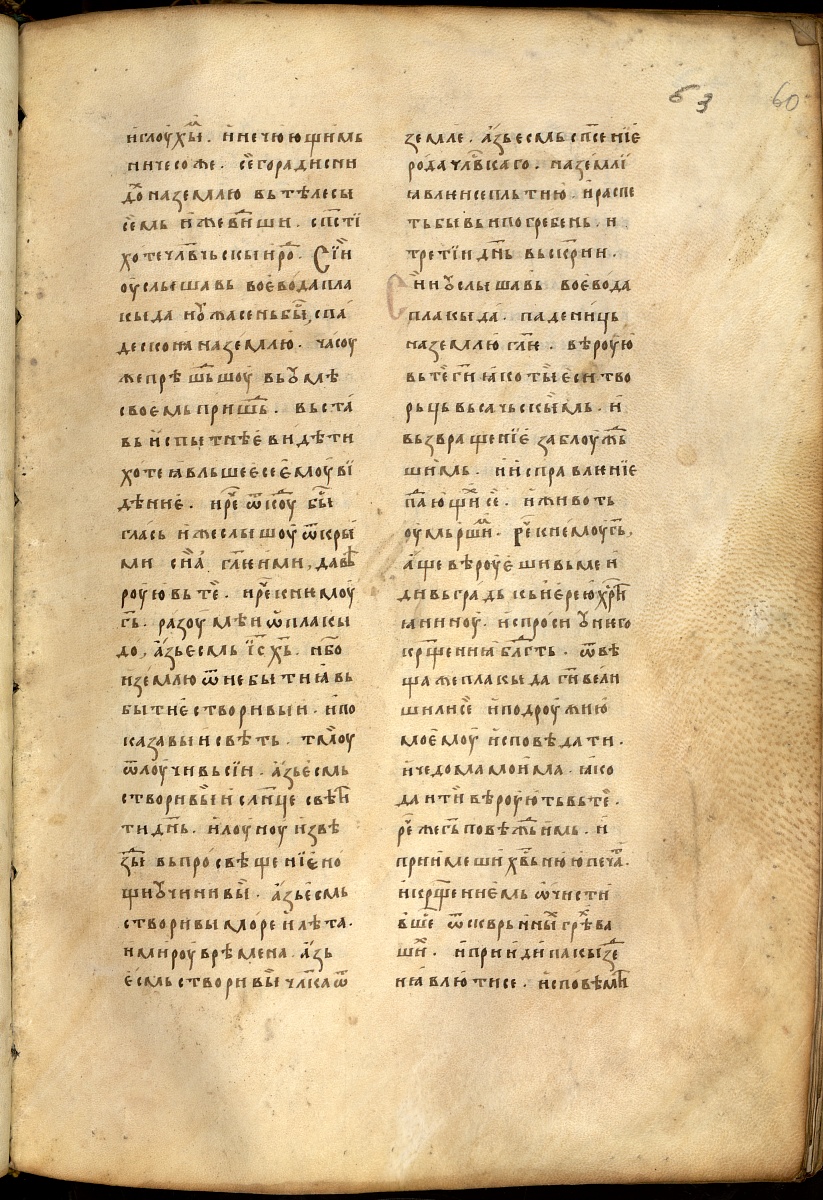 63 60
и҆глоу҆хы̏мⷨ. и҆ нечюю҆щимь
ничесоже. сего̀ радиснⷤи
до̏ⷯ на землю вь тѣлесы
сѐмь и҆же вⷣиши. спⷭ҇ти
хоте члвⷱ҇ьскыи҆ роⷣ. Сїи҆
оу҆слышавь вое҆вода пла
кыда и҆ оу҆жасень бы̏ⷭ, спа
де сь конꙗ на землю. часоу
же прѣшⷣьшоу вь оу҆мѣ
своемь пришⷣь. вьста
вь и҆спытнѣе҆ видѣти
хоте ꙗвльшее҆се е҆моу ви
дѣние҆. и҆ рⷱ҇е ѿкоу̏ⷣ бы̏ⷭ
глась и҆же слышоу ѿкры́
ми сна̏ гл҃ки ми, да вѣ
роую҆ вь тѐ. и҆ рⷱ҇е к немоу
г҃ь. разоумѣи ѡ҆ плакы
до, а҆зь е҆смь і҆с҃ х҃ь. нб҃о
и҆ землю ѿ небытиꙗ вь
бытие҆ створивыи҆. и҆ по
казавы и҆ свѣть. тмⷨоу
ѿлоучивь сїи. а҆зь е҆смь
створивы̏ и҆ слн҃це свѣ
ти дн҃ь. и҆ лоуноу и҆звѣ
зⷣы вь просвѣщенїе҆ но
щи оу҆чинивы̏. а҆зь е҆смь
створивы море и҆ лѣта.
и҆ мироу врѣмена. а҆зь
е҆смь створивы̏ чл҃ка ѿ
земле. а҆зь е҆смь спⷭ҇сенїе
рода члв҃ⷱ҇каго. на землї
ꙗвлии се пльтию. и҆ распе
ть бывь и҆ погребень. и҆
третїи дн҃ь вьскрⷭ҇ии.
Сїи оу҆слышавь вое҆вода
плакыда. паде ниць
на землю гл҃ѥ. вѣроую҆
вь тѐ ги҃ ꙗко ты̏ е҆си тво
рьць вьсачьскы̏мь. и҆
вьзвращенїе҆ заблоу̏жⷣь
шимь. и҆ и҆справлѥнїе
паⷣю҆щи̏мⷨ се. и҆ животь
оу҆мьрши̏мⷨ. Рⷱ҇е к немоу гь҃,
а҆ще вѣроуе҆ши вь ме и҆
ди вь градь кь і҆е҆рею хрⷭ҇ти
ꙗниноу. и҆спроси оу҆ нѥго
крⷭ҇щениꙗ блгⷣть. ѿвѣ
ща же плакыда ги҃ вели
ши ли се и҆ подроужию
мое҆моу и҆сповѣдати.
и҆ чедома мои҆ма. ꙗко
да и҆ ти̏ вѣроую҆ть вь тѐ.
рⷱ҇е же гь҃ повѣжⷣь и҆мь. и҆
приимеши хв҃ьнюю печаⷮ.
и҆ крⷭ҇щениемь ѡ҆чисти
вⷭ҇ьше ѿ скврьнны̏ⷯ грѣ̏ⷯ ва
ши̏ⷯ. и҆ приди пакы зⷣе
иꙗвлю ти се. и҆сповѣмь